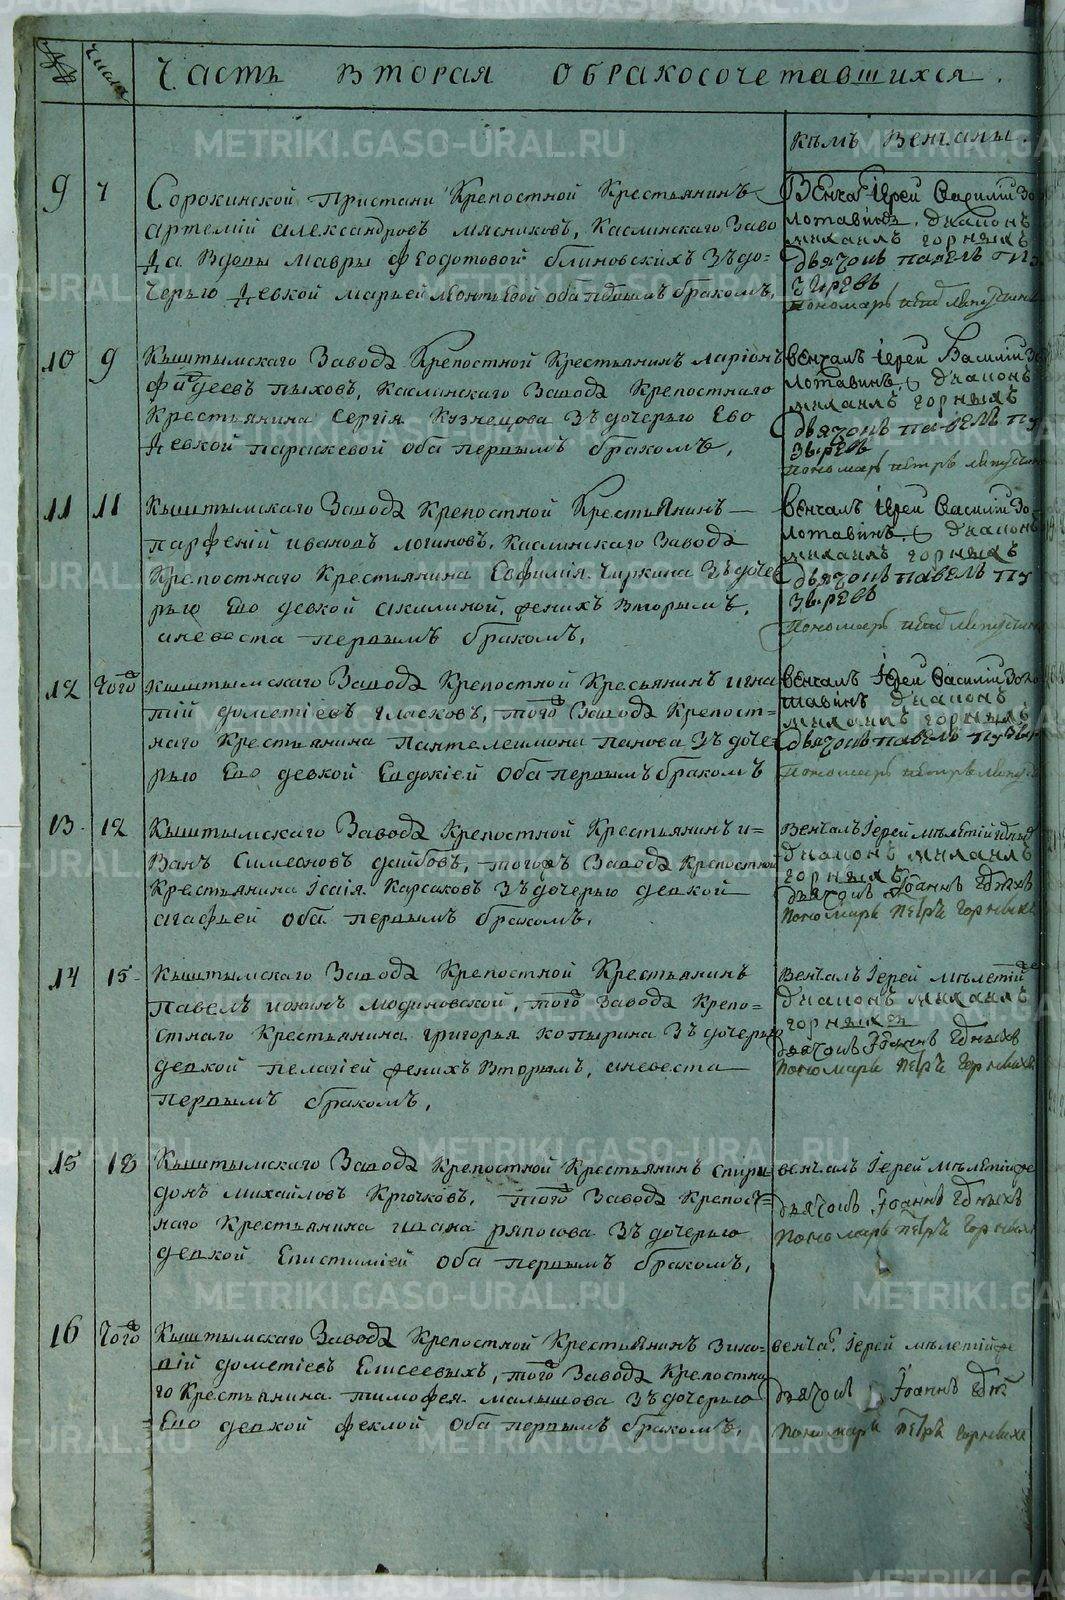 № Числа Часть вторая обракосочетавшихся.
кѣмъ венчаны.
9 7 Сорокинской Пристани Крепостной Крестьянинъ
артемій александровъ мясниковъ, Каслинскаго Заво
да Вдовы Мавры Феодотовой блиновскихъ Зъ до=
черью девкой марьей леонтьевой оба первымъ бракомъ.
Венча Іерей Василій Зо
лотавинъ. Діаконъ
михаилъ горныхъ
дьячокъ павелъ пу
зыревъ
пономарь
10 9 Кыштымскаго Завода Крепостной Крестьянинъ ларіонъ
фадеевъ пыховъ, Каслинскаго Завода Крепостнаго
Крестьянина Сергія Кузнецова Зъ дочерью Ево
девкой параскевой оба первымъ бракомъ,
венчалъ іерей Василий Зо
лотавинъ, Діаконъ
михаилъ горныхъ
дьячокъ павелъ пу
зыревъ
пономарь петръ
11 11 Кыштымскаго Завода Крепостной Крестьянинъ
парфеній ивановъ логиновъ, Каслинскаго Завода
Крепостнаго Крестьянина Евфимія Чиркина Зъ доче
рью Ево девкой акилиной, жених Вторымъ,
аневеста первымъ бракомъ,
венчалъ Іерей Василій Зо
лотавинъ, Діаконъ
михаилъ горныхъ
дьячокъ павелъ пу
зыревъ
пономарь
12 того Кыштымскаго Завода Крепостной Кресьянинъ игна
тій дометіевъ гласковъ, того Завода Крепост=
наго Крестьянина Пантелеимона Панова Зъ доче=
рью Ево девкой Евдокіей оба первымъ бракомъ
венчалъ Іерей Василій Золо
тавинъ Діаконъ
михаилъ горныхъ
дьячокъ павелъ пузыр
пономарь петръ
13 12 Кыштымскаго Завода Крепостной Крестьянинъ и=
ванъ Симеоновъ дайбовъ, тогожъ Завода Крепостной
Крестьянина Ісаія Карсаковъ Зъ дочерью девкой
агафьей оба первымъ бракомъ,
Венчалъ Іерей Мѣлетій
Діаконъ михаилъ
горныхъ
дьячокъ Іоаннъ Едныхъ
пономарь Петръ Горныхъ
14 15 Кыштымскаго Завода Крепостной Крестьянинъ
Павелъ ионинъ мединовской, того Завода Крепо=
стнаго Крестьянина григорья копырина Зъ дочерью
девкой пелагіей жених Вторымъ, аневеста
первымъ бракомъ,
Венчалъ Іерей мѣлетій
Діаконъ михаилъ
горныхъ
дьячокъ Іоаннъ Едныхъ
пономарь Петръ Горныхъ
15 18 Кыштымскаго Завода Крепостной Крестьянинъ спири
донъ михайловъ Крючковъ, того Завода Крепост=
наго Крестьянина ивана ряпосова Зъ дочерью
девкой Епистиміей оба первымъ бракомъ,
венчалъ Іерей Мѣлетій
дьячокъ Іоаннъ Едныхъ
пономарь Петръ Горныхъ
16 того Кыштымскаго Завода Крепостной Крестьянинъ Зино=
вій дометіевъ Елисеевыхъ, того Завода Крепостна
го Крестьянина тимофея малышова Зъ дочерью
Ево девкой феклой оба первымъ бракомъ.
венча Іерей мѣлетій
дьячокъ Іоаннъ
пономарь Петръ Горныхъ
METRIKI.GASO-URAL.RU